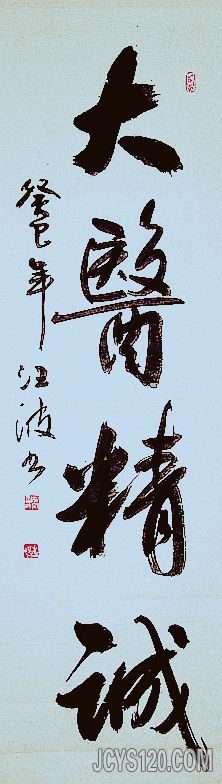 大醫精誠
癸巳年汪波书
JCYS120.COM